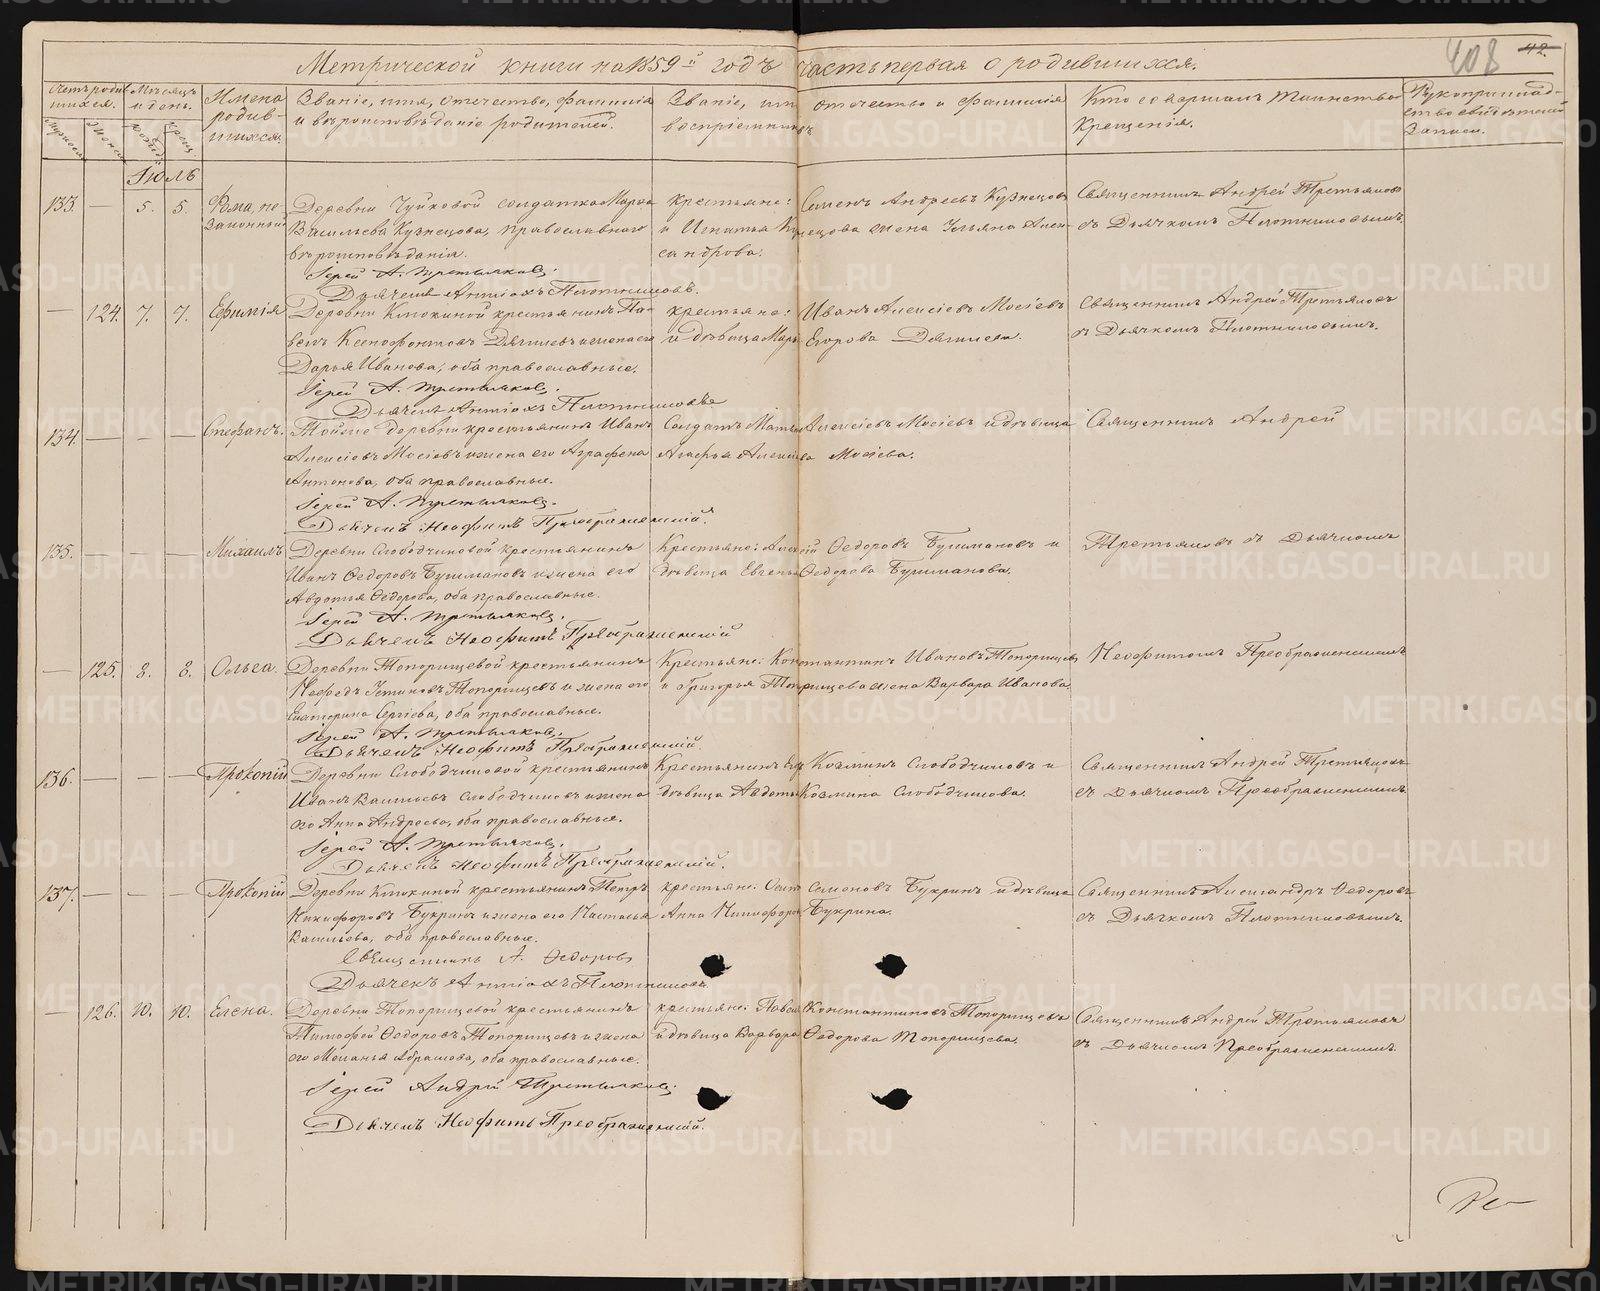 408 42.
Метрической книги на 1859й годъ часть первая о родившихся.
Счетъ родившихся. Мѣсяцъ и день. Имена родившихся.
Званіе, имя, отечество, фамилія и вѣроисповѣданіе родителей.
Званіе, имя отечество и фамилія воспріемниковъ
Кто совершалъ таинство Крещенія.
Рукоприкладство свидѣтелей записи.
Мужеска Женска рожд. крещ.
Іюль
133. — 5. 5. Фома, незаконный
Деревни Чуйковой солдатка Марѳа
Васильева Кузнецова, православнаго
вѣроисповѣданія.
Іерей А. Третьяковъ.
Дьячекъ Антіохъ Плотниковъ.
крестьяне: Семенъ Андреевъ Кузнецовъ
и Игнатья Кузнецова жена Ульяна Александрова.
Священникъ Андрей Третьяковъ
съ Дьячкомъ Плотниковымъ.
— 124. 7. 7. Ефимія
Деревни Клюкиной крестьянинъ Павелъ Ксенофонтовъ Дягилевъ и жена его
Дарья Иванова, оба православные.
Іерей А. Третьяковъ.
Дьячекъ Антіохъ Плотниковъ
крестьяне: Иванъ Алексѣевъ Мосѣевъ
и дѣвица Марья Егорова Дягилева.
Священникъ Андрей Третьяковъ
съ Дьячкомъ Плотниковымъ.
134. — — — Стефанъ.
Тойже деревни крестьянинъ Иванъ
Алексѣевъ Мосѣевъ и жена его Аграфена
Антонова, оба православные.
Іерей А. Третьяковъ.
Дьячекъ Неофитъ Преображенскій.
Солдатъ Матвѣй Алексѣевъ Мосѣевъ и дѣвица
Агафья Алексѣева Мосѣева.
Священникъ Андрей
135. — — — Михаилъ
Деревни Слободчиковой крестьянинъ
Иванъ Федоровъ Бушмановъ и жена его
Авдотья Федорова, оба православные.
Іерей А. Третьяковъ.
Дьячекъ Неофитъ Преображенскій
Крестьяне: Алексѣй Федоровъ Бушмановъ и
дѣвица Евгенья Федорова Бушманова.
Третьяковъ съ Дьячкомъ
— 125. 8. 8. Ольга.
Деревни Топорищевой крестьянинъ
Нефедъ Устиновъ Топорищевъ и жена его
Екатерина Сергѣева, оба православные.
Іерей А. Третьяковъ.
Дьячекъ Неофитъ Преображенскій.
Крестьяне: Константинъ Ивановъ Топорищевъ
и Григорья Топорищева жена Варвара Иванова.
Неофитомъ Преображенскимъ
136. — — — Прокопій
Деревни Слободчиковой крестьянинъ
Иванъ Васильевъ Слободчиковъ и жена
его Анна Андреева, оба православные.
Іерей А. Третьяковъ.
Дьячекъ Неофитъ Преображенскій.
Крестьянинъ Козминъ Слободчиковъ и
дѣвица Авдотья Козмина Слободчикова.
Священникъ Андрей Третьяковъ
съ Дьячкомъ Преображенскимъ.
137. — — — Прокопій
Деревни Клюкиной крестьянинъ Петръ
Никифоровъ Букринъ и жена его Настасья
Васильева, оба православные.
Священникъ А. Федоровъ
Дьячекъ Антіохъ Плотниковъ.
крестьяне: Осипъ Семеновъ Букринъ и дѣвица
Анна Никифорова Букрина.
Священникъ Александръ Федоровъ
съ Дьячкомъ Плотниковымъ.
— 126. 10. 10. Елена.
Деревни Топорищевой крестьянинъ
Тимофей Федоровъ Топорищевъ и жена
его Меланья Абрамова, оба православные.
Іерей Андрей Третьяковъ.
Дьячекъ Неофитъ Преображенскій.
крестьяне: Павелъ Константиновъ Топорищевъ
и дѣвица Варвара Федорова Топорищева.
Священникъ Андрей Третьяковъ
съ Дьячкомъ Преображенскимъ.
METRIKI.GASO-URAL.RU